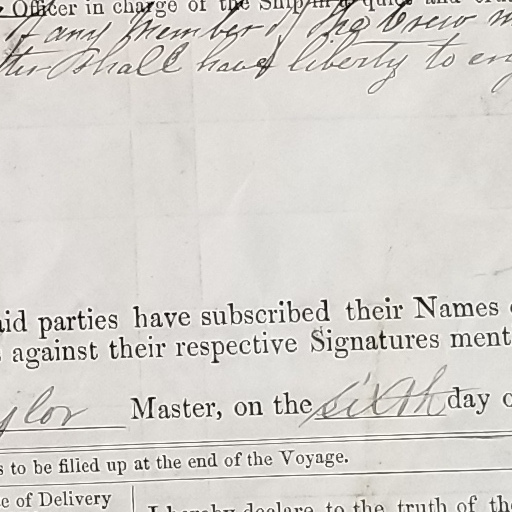 Officer in charge of the Ship in a quiet and
If any Member of the Crew
shall have liberty to
aid parties have subscribed their Names
against their respective Signatures ment
ylor Master, on the sixth day o
s to be filled up at the end of the Voyage.
e of Delivery
I hereby declare to the truth of the